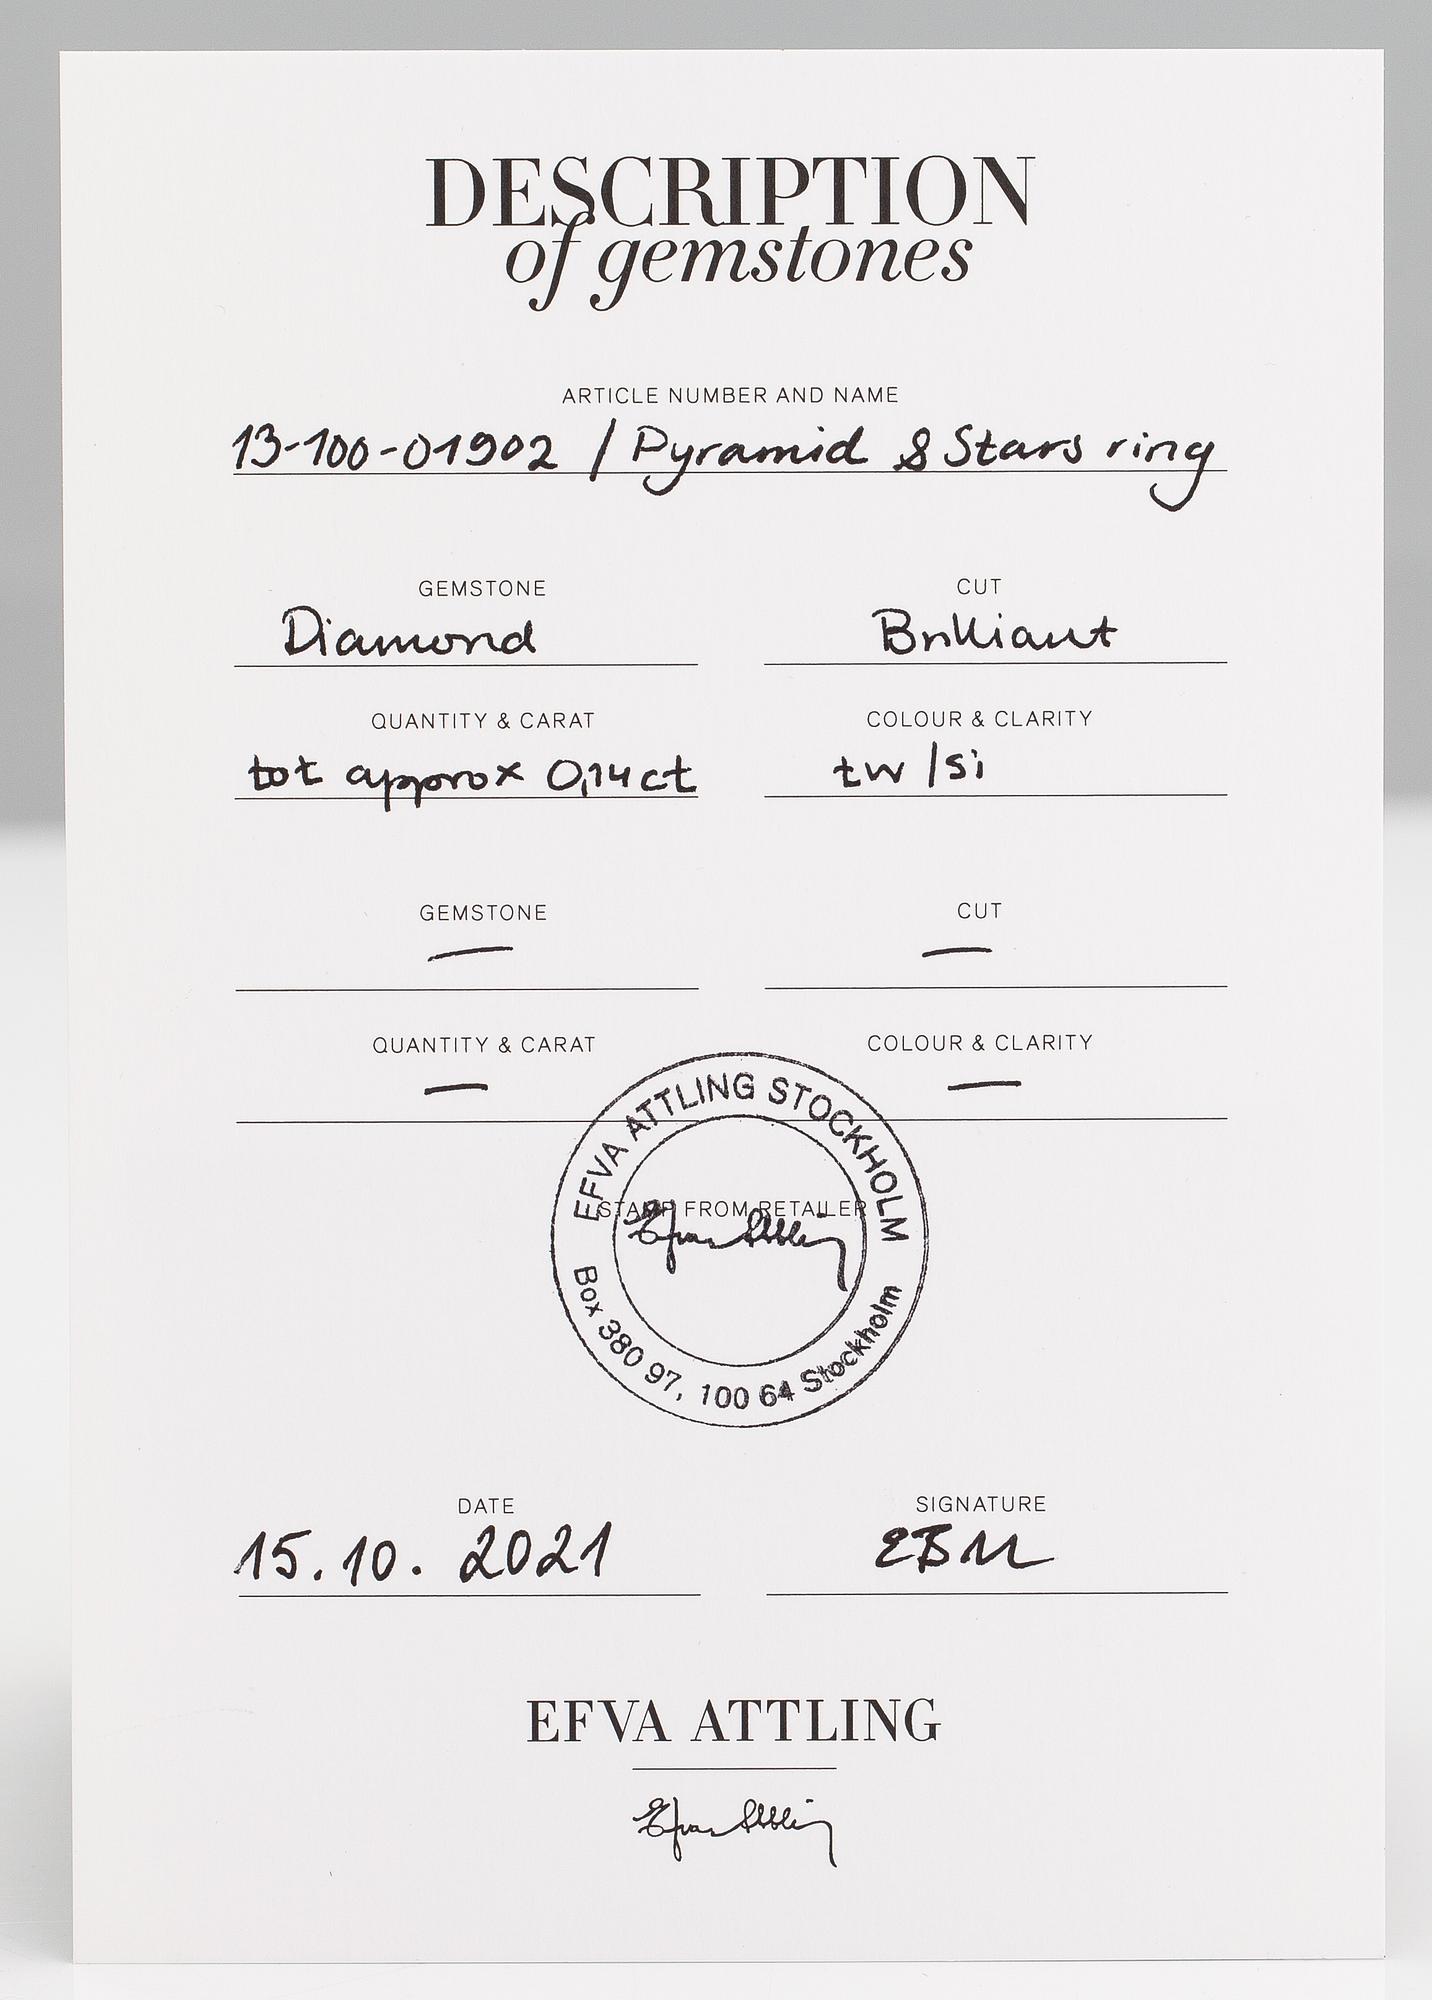 DESCRIPTION
of gemstones
ARTICLE NUMBER AND NAME
13-100-01902 / Pyramid & Stars ring
GEMSTONE
CUT
Diamond
Brilliant
QUANTITY & CARAT
COLOUR & CLARITY
tot approx 0,14 ct
tw / si
GEMSTONE
CUT
—
—
QUANTITY & CARAT
COLOUR & CLARITY
—
—
EFVA ATTLING STOCKHOLM
STAMP FROM RETAILER
Efva Attling
Box 380 97, 100 64 Stockholm
DATE
SIGNATURE
15.10.2021
EFVA ATTLING
Efva Attling